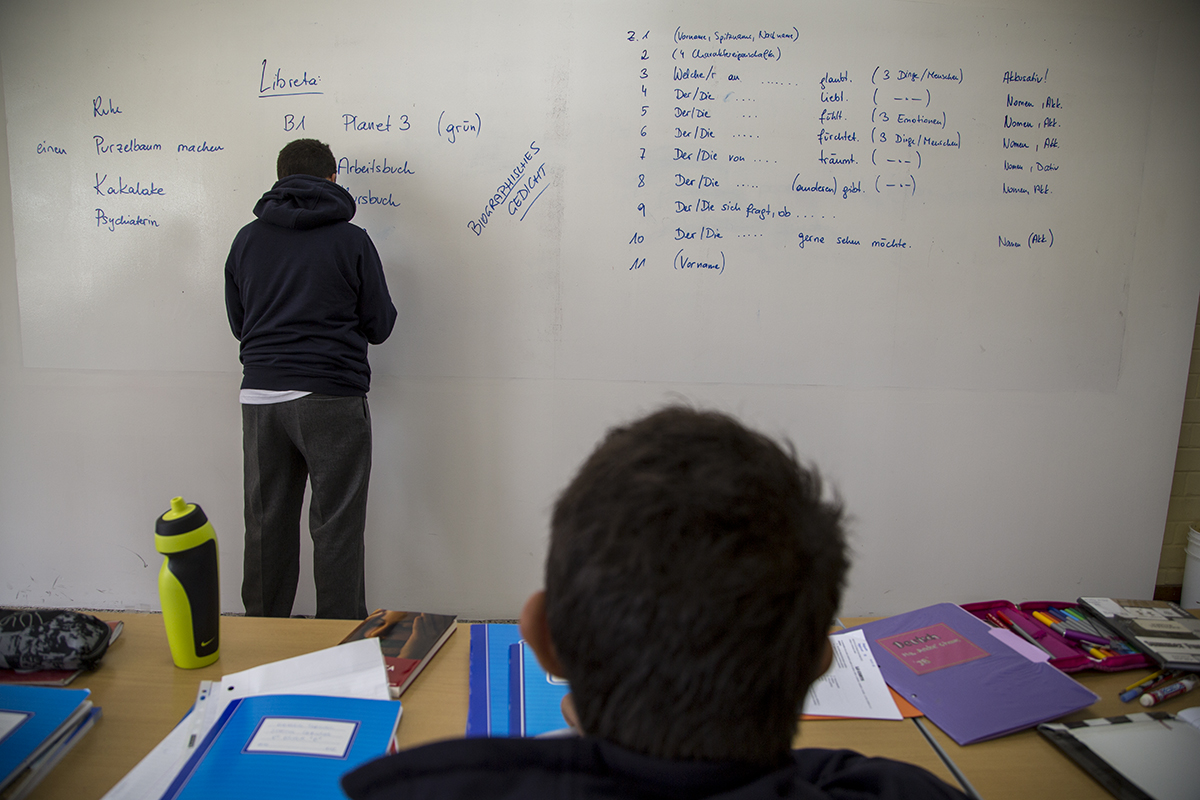 Libreta:
Ruhe
einen Purzelbaum machen
Kakalake
Psychiaterin
B1 Planet 3 (grün)
Arbeitsbuch
BIOGRAPHISCHES
GEDICHT
Z. 1 (Vorname, Spitzname, Nachname)
2 (4 Charaktereigenschaften)
3 Welche/r an ...... glaubt. (3 Dinge/Menschen) Akkusativ!
4 Der/Die .... liebt. (-·-) Nomen, Akk.
5 Der/Die ... fühlt. (3 Emotionen) Nomen, Akk.
6 Der/Die ..... fürchtet. (3 Dinge/Menschen) Nomen, Akk.
7 Der/Die von .... träumt. (-·-) Nomen, Dativ
8 Der/Die ..... (anderen) gibt. (-·-) Nomen, Akk.
9 Der/Die sich fragt, ob ......
10 Der/Die ..... gerne sehen möchte. Nomen (Akk)
11 (Vorname)